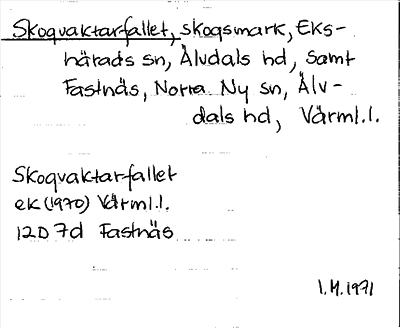 Skogvaktarfallet, skogsmark, Eks-
härads sn, Älvdals hd, samt
Fastnäs, Norra Ny sn, Älv-
dals hd, Värml.l.
Skogvaktarfallet
ek (1970) Värml.l.
12D 7d Fastnäs
I.M. 1971